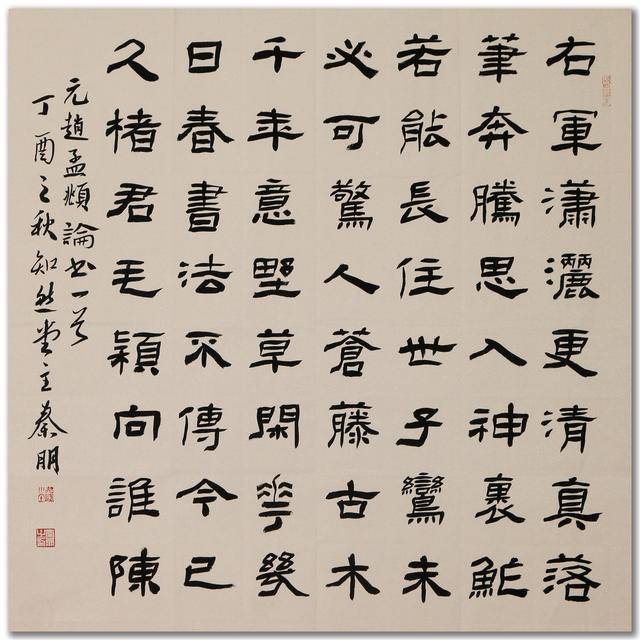 右軍瀟灑更清真落
筆奔騰思入神裏鮓
若能長住世子鸞未
必可驚人蒼藤古木
千年意野草閑花幾
日春書法不傳今已
久楮君毛穎向誰陳
元趙孟頫論書一首
丁酉之秋知然堂主秦朋